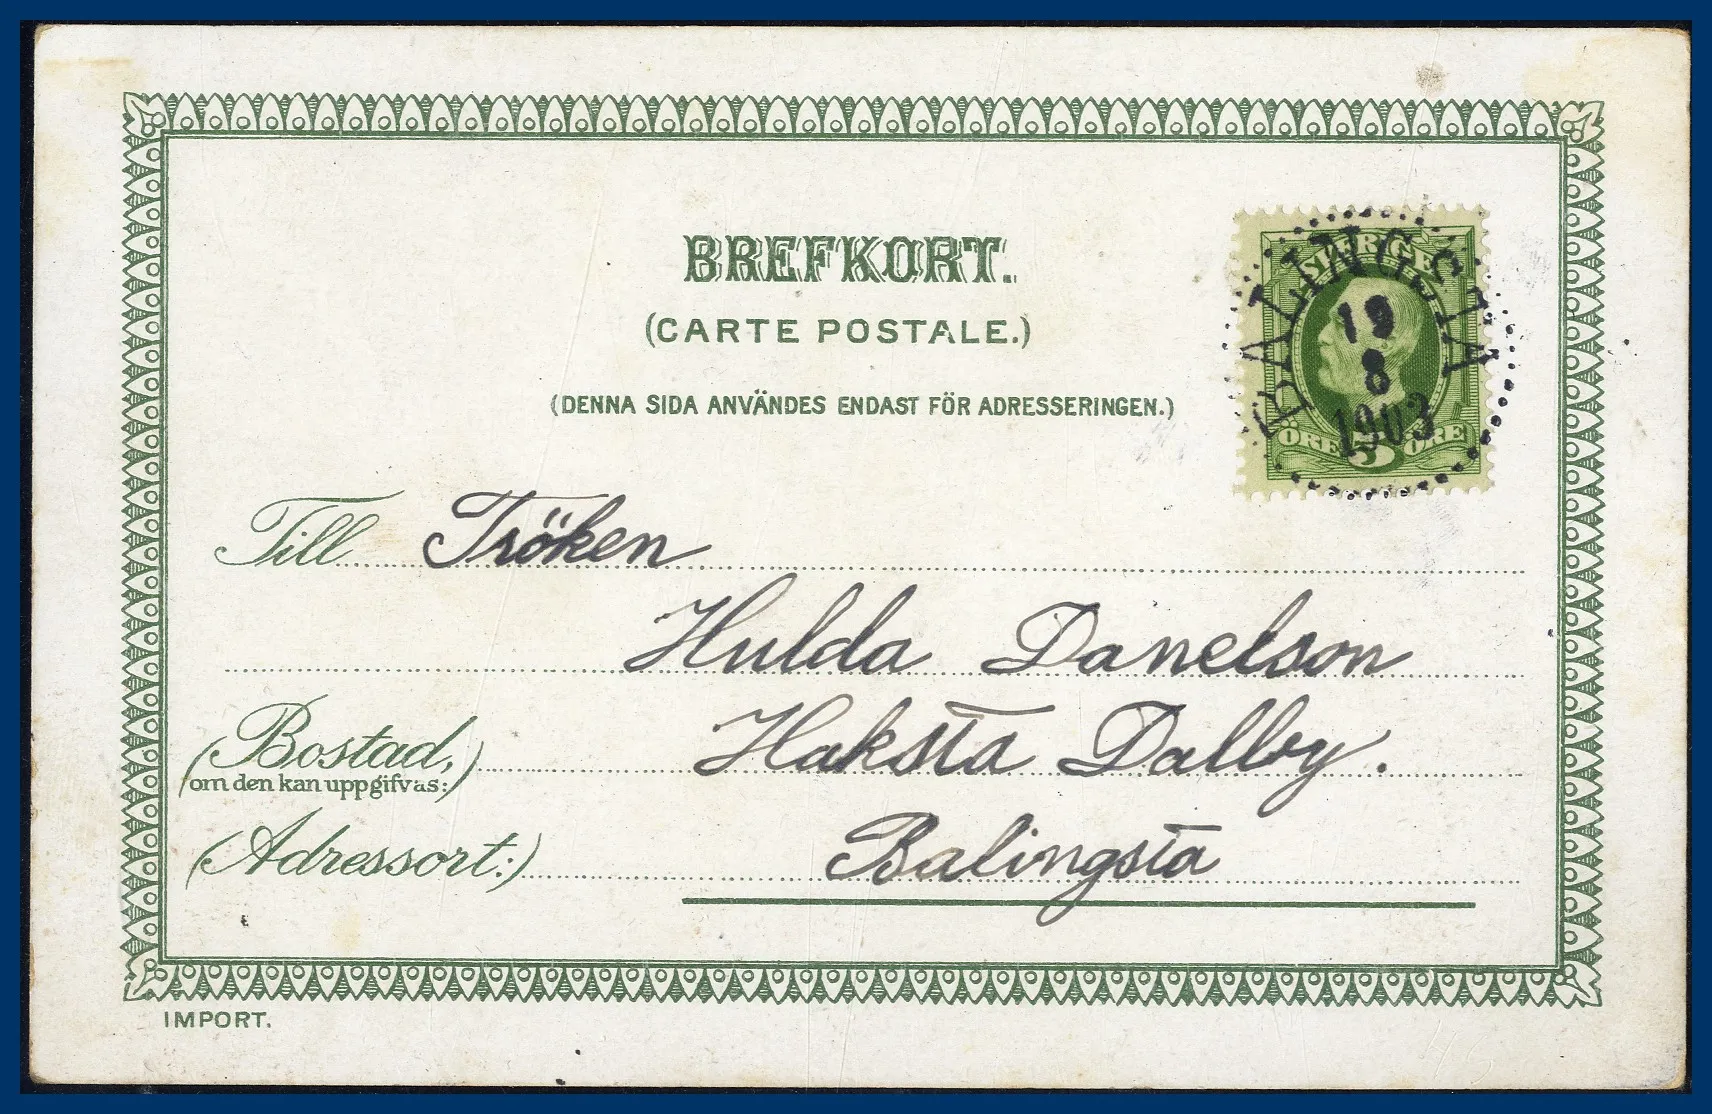 BREFKORT.
(CARTE POSTALE.)
(DENNA SIDA ANVÄNDES ENDAST FÖR ADRESSERINGEN.)
SVERIGE
BALINGSTA
19
8
1903
ÖRE 5 ÖRE
Till Fröken
Hulda Danelson
(Bostad,) Haksta Dalby.
om den kan uppgifvas:
(Adressort:) Balingsta
IMPORT.